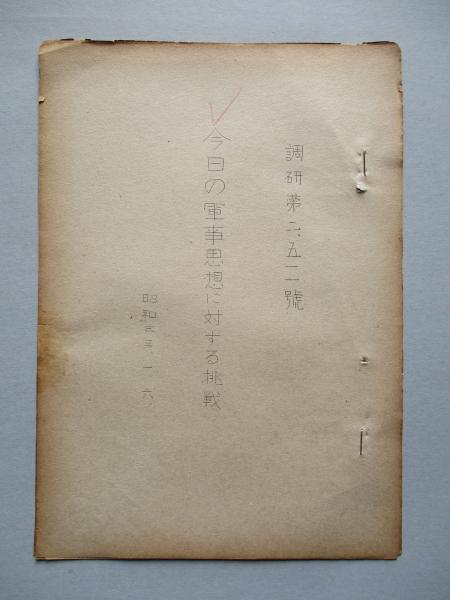 調研第二、五二號
今日の軍事思想に対する挑戦
昭和三三一六、